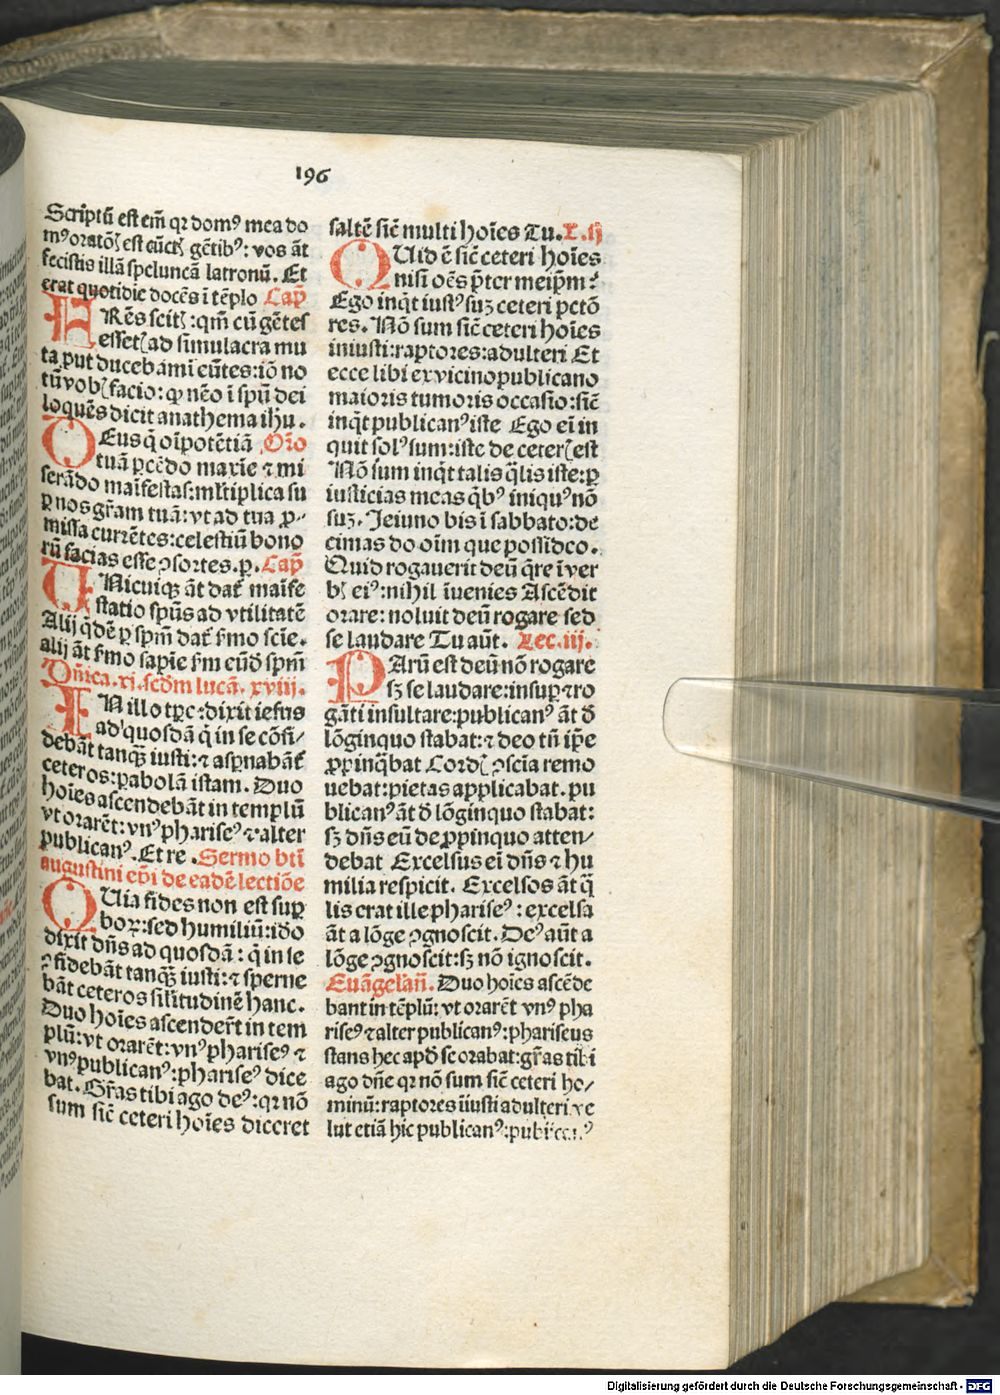 196
Scriptū est em̄ qꝛ domꝰ mea do
mꝰ oratōis est cūctꝭ gētibꝰ: vos āt
fecistis illā speluncā latronū. Et
erat quotidie docēs ī tēplo Cap̄
FRēs scitꝭ: qm̄ cū gētes
essetꝭ ad simulacra mu
ta put ducebāmi eūtes: iō no
tū vobꝭ facio: ꝙ nēo ī spū dei
loquēs dicit anathema ihu.
DEus q̄ oīpotētiā Orō
tuā ꝑcēdo maxīe ⁊ mi
serādo maīfestas: mltiplica su
ꝑ nos gr̄am tuā: vt ad tua ꝓ⸗
missa currētes: celestiū bono
rū facias esse ꝯsortes. ꝑ. Cap̄
UNicuiqꝫ āt dat̄ maīfe
statio spūs ad vtilitatē
Alij q̄dē ꝑ spm̄ dat̄ ſmo scīe.
alij āt ſmo sapīe ſm eūd̄ spm̄
Dn̄ica. xj. scd̄m lucā. xviij.
IN illo tꝑe: dixit iesus
ad quosdā q̄ in se cōfi⸗
debāt tanqꝫ iusti: ⁊ aspnabāt̄
ceteros: ꝑabolā istam. Duo
hoīes ascendebāt in templū
vt orarēt: vnꝰ phariseꝰ ⁊ alter
publicanꝰ. Et re. Sermo bti
augustini ep̄i de eadē lectiōe
QUia fides non est suꝑ
boꝝ: sed humiliū: ido
dixit dn̄s ad quosdā: q̄ in se
ꝯfidebāt tanqꝫ iusti: ⁊ sperne
bāt ceteros silitudinē hanc.
Duo hoīes ascender̄t in tem
plū: vt orarēt: vnꝰ phariseꝰ ⁊
vnꝰ publicanꝰ: phariseꝰ dice
bat. Gr̄as tibi ago deꝰ: qꝛ nō
sum sic̄ ceteri hoīes diceret
saltē sic̄ multi hoīes Tu. L. ij
QUid ē sic̄ ceteri hoīes
nisi oēs p̄ter meip̄m?
Ego inq̄t iustꝰ suꝫ ceteri pctō
res. Nō sum sic̄ ceteri hoīes
iniusti: raptores: adulteri Et
ecce tibi ex vicino publicano
maioris tumoris occasio: sic̄
inq̄t publicanꝰ iste Ego ei in
quit solꝰ sum: iste de ceterꝭ est
Nō sum inq̄t talis q̄lis iste: ꝑ
iusticias meas q̄bꝰ iniquꝰ nō
suꝫ. Jeiuno bis ī sabbato: de
cimas do oīm que possideo.
Quid rogauerit deū q̄re ī ver
bꝭ eiꝰ: nihil īuenies Ascēdit
orare: noluit deū rogare sed
se laudare Tu aūt. Lec. iij.
PArū est deū nō rogare
sꝫ se laudare: insuꝑ ⁊ ro
gāti insultare: publicanꝰ āt d̄
lōginquo stabat: ⁊ deo tn̄ ip̄e
ꝓpinq̄bat Cordꝭ ꝯscia remo
uebat: pietas applicabat. pu
blicanꝰ āt d̄ lōginquo stabat:
sꝫ dn̄s eū de ꝓpinquo atten⸗
debat Excelsus ei dn̄s ⁊ hu
milia respicit. Excelsos āt q̄
lis erat ille phariseꝰ: excelsa
āt a lōge ꝯgnoscit. Deꝰ aūt a
lōge ꝯgnoscit: sꝫ nō ignoscit.
Euāgeliū. Duo hoīes ascēde
bant in tēplū: vt orarēt vnꝰ pha
riseꝰ ⁊ alter publicanꝰ: phariseus
stans hec apd̄ se orabat: gr̄as tibi
ago dn̄e qꝛ nō sum sic̄ ceteri ho⸗
minū: raptores iiusti adulteri. ve
lut etiā hic publicanꝰ: publicanꝰ
Digitalisierung gefördert durch die Deutsche Forschungsgemeinschaft - DFG